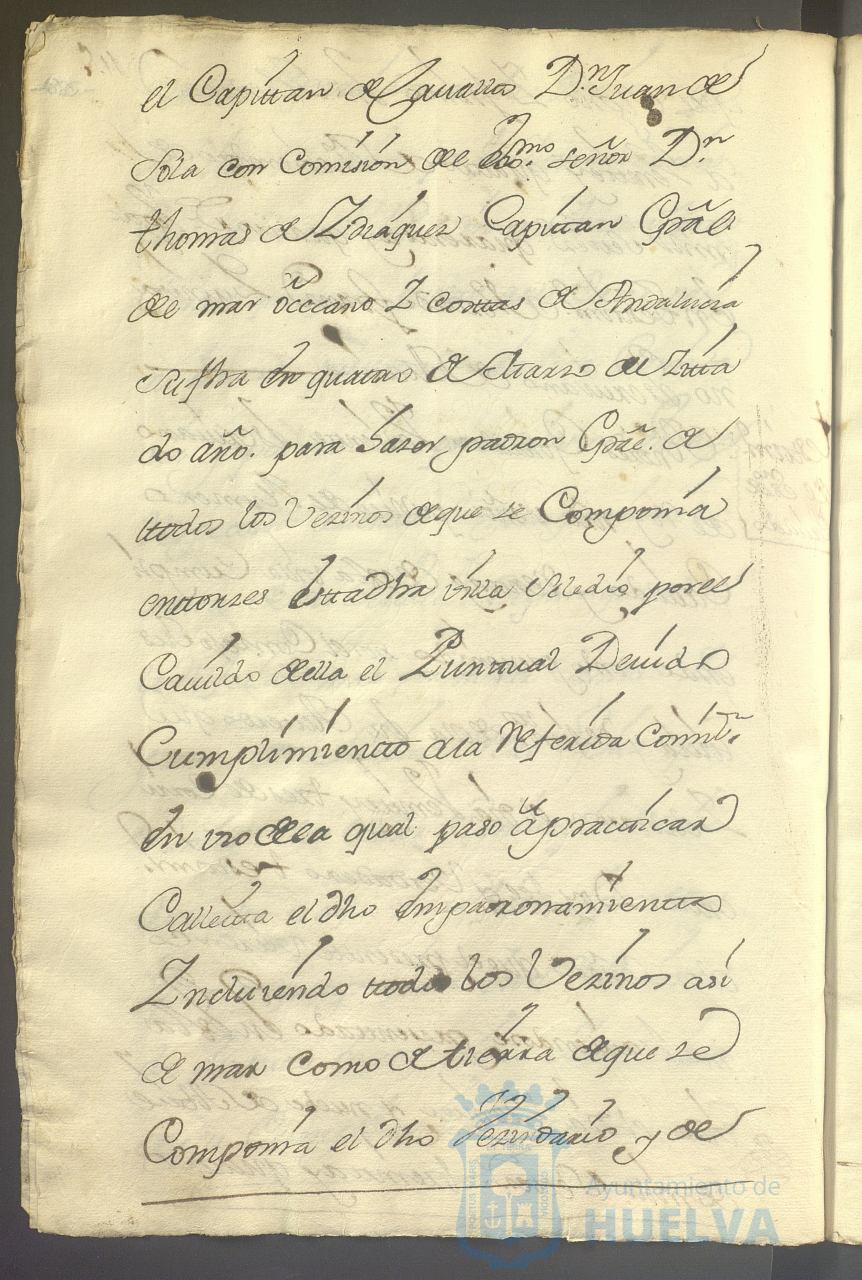 el Capittan de Cavallo Dn. Juan de
Sola con Comisión de el Exmo. señor Dn
thomas de Ydiáquez Capittan Gral
de mar occeano Y costtas de Andalucia
su fha en quatro de Marzo de zitta
do año. para hazer padron Gral. de
ttodos los Vezinos de que se Componia
enttonzes estta dha villa se le dió por el
Cavildo de ella el Punttual Devido
Cumplimientto a la Referida Comisn.
En vro de la qual paso á practticar
Calleitta el dho Empadronamientto
Yncluiendo ttodos los Vezinos asi
de mar como de tierra de que se
Componia el dho Vezindario y de
Ayuntamiento de
HUELVA